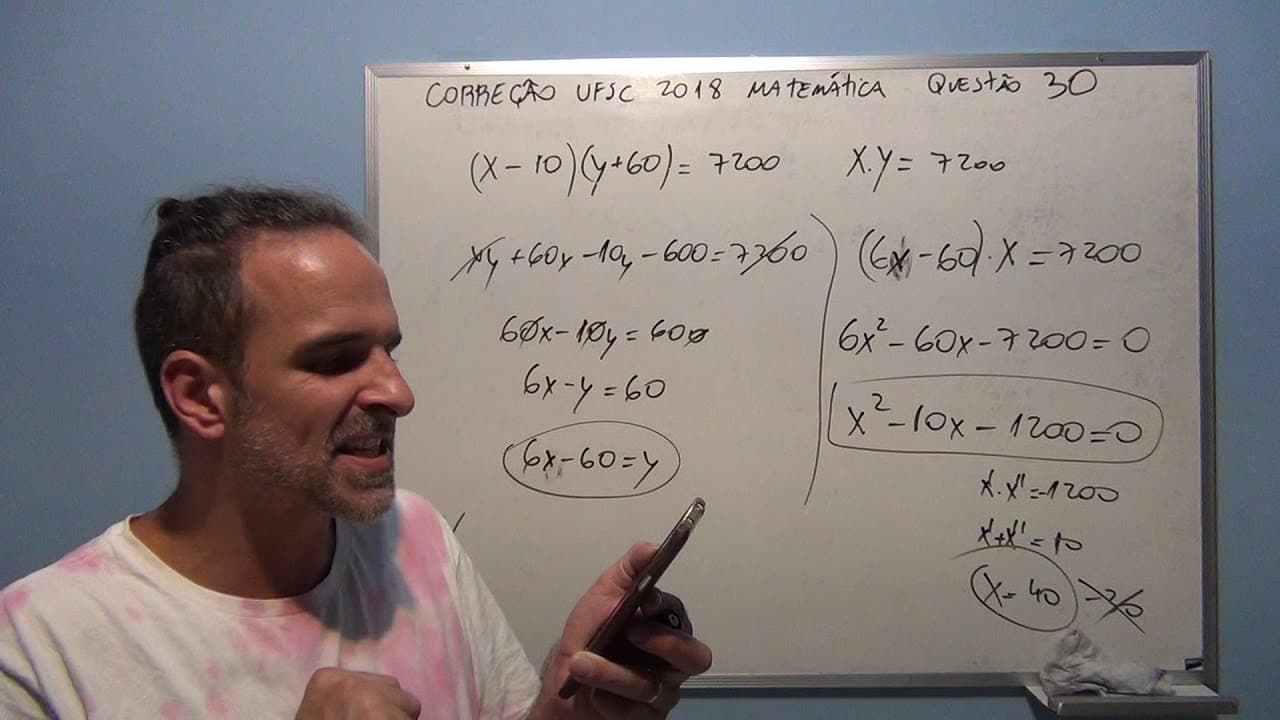 CORREÇÃO UFSC 2018 MATEMÁTICA QUESTÃO 30
(X - 10)(y+60) = 7200
xy + 60x - 10y - 600 = 7200
60x - 10y = 600
6x - y = 60
6x - 60 = y
X.Y = 7200
(6x - 60).X = 7200
6x² - 60x - 7200 = 0
x² - 10x - 1200 = 0
x'.x'' = -1200
x'+x'' = 10
X = 40 -30